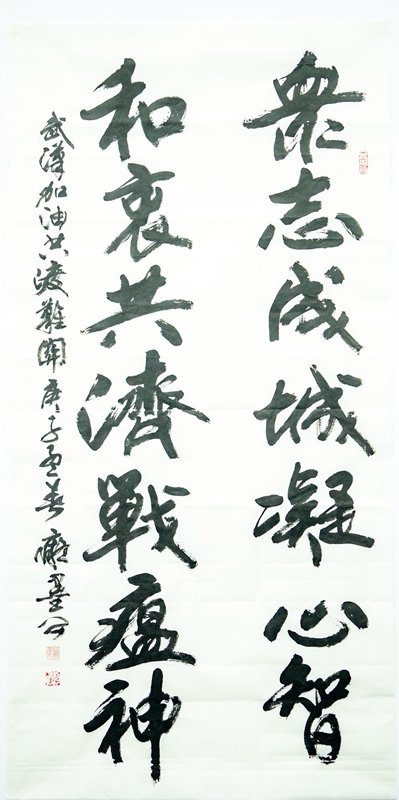 眾志成城凝心智
和衷共濟戰瘟神
武漢加油共渡難關庚子孟春癡墨公